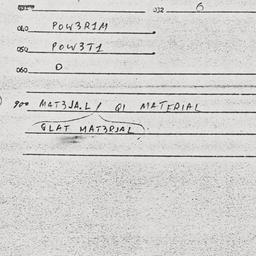 032 6
040 POW3R1M
050 POW3T1
060 D
900 MAT3JA.L / QI MATERIAL
GLAT MAT3RJAL